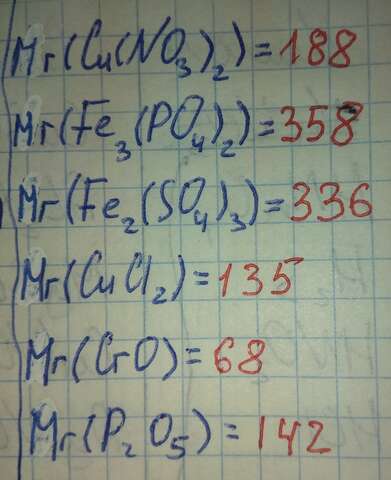 Mr(Cu(NO₃)₂)=188
Mr(Fe₃(PO₄)₂)=358
Mr(Fe₂(SO₄)₃)=336
Mr(CuCl₂)=135
Mr(CrO)=68
Mr(P₂O₅)=142